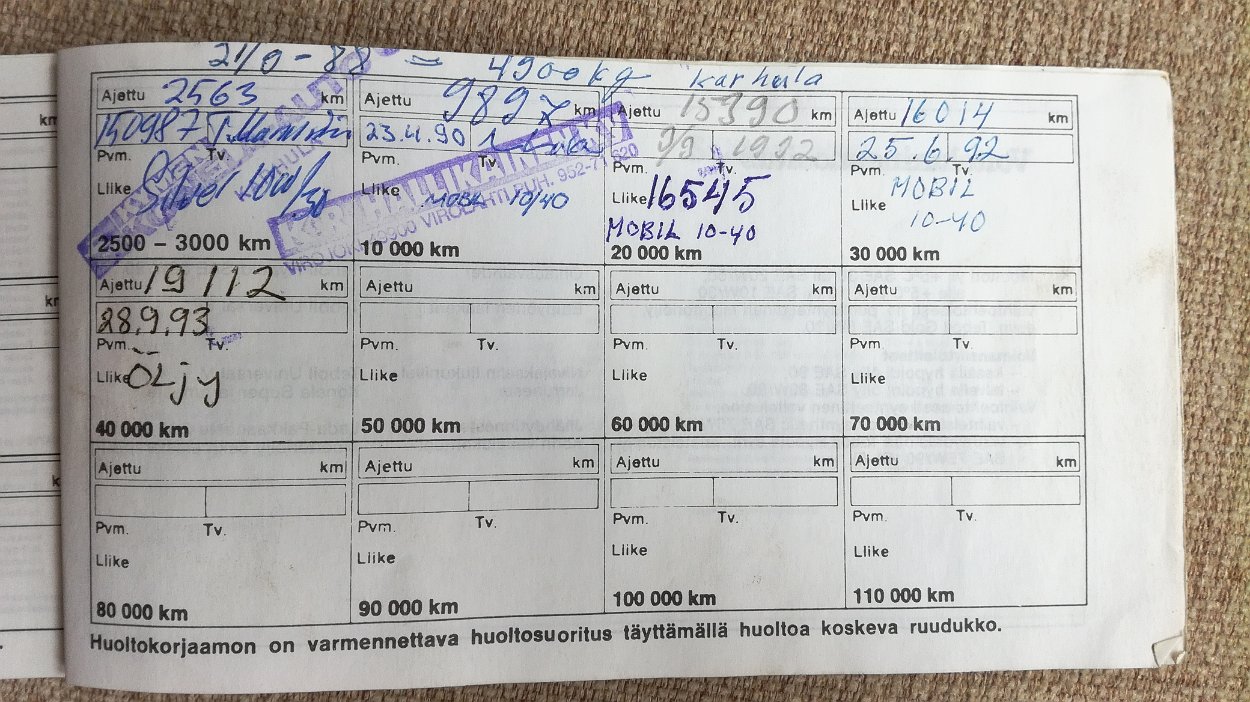 21/0-88 = 4900 kg Karhula
Ajettu 2563 km
150987
Pvm. Tv.
Llike
2500 – 3000 km
Ajettu 9897 km
23.4.90
Pvm. Tv.
Llike MOBIL 10/40
VIROJOKI, VIROLAHTI PUH. 952-71 620
10 000 km
Ajettu 15990 km
1992
Pvm. Tv.
Llike 16545
MOBIL 10-40
20 000 km
Ajettu 16014 km
25.6.92
Pvm. Tv.
Llike MOBIL
10-40
30 000 km
Ajettu 19112 km
28.9.93
Pvm. Tv.
Llike ÖLjy
40 000 km
Ajettu km
Pvm. Tv.
Llike
50 000 km
Ajettu km
Pvm. Tv.
Llike
60 000 km
Ajettu km
Pvm. Tv.
Llike
70 000 km
Ajettu km
Pvm. Tv.
Llike
80 000 km
Ajettu km
Pvm. Tv.
Llike
90 000 km
Ajettu km
Pvm. Tv.
Llike
100 000 km
Ajettu km
Pvm. Tv.
Llike
110 000 km
Huoltokorjaamon on varmennettava huoltosuoritus täyttämällä huoltoa koskeva ruudukko.